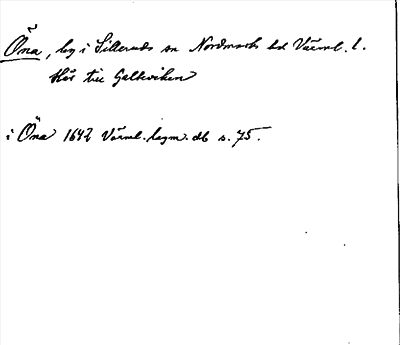 Öna, lag i Silleruds sn Nordmarks hd Värml. l.
Hör till Galtviken
i Öna 1642 Värml. lagm. db s. 75.